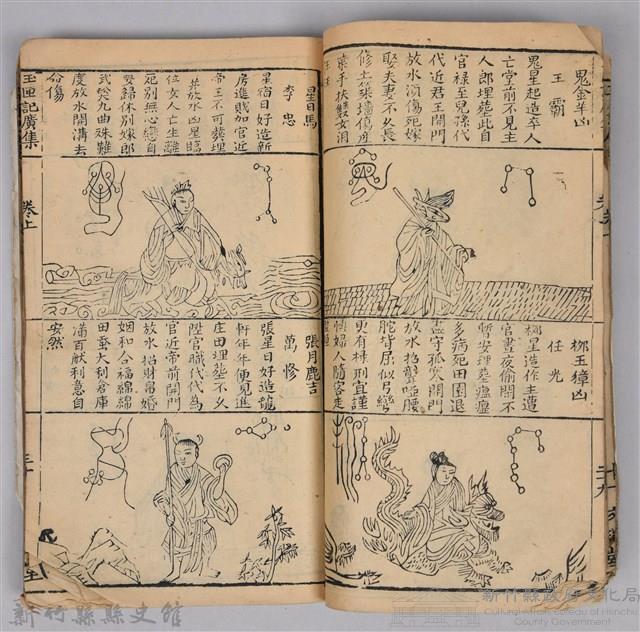 鬼金羊凶
王霸
鬼星起造卒人
亡堂前不見主
人郎埋塟此自
官禄至兒孫代
代近君王開門
放水須傷死嫁
娶夫妻不久長
修土築墻傷産
手扶雙女泪
汪汪
柳土獐凶
任光
柳星造作主遭
官晝夜偷閑不
暫安埋塟瘟
多病死田園退
盡守孤寒開門
放水招聾啞腰
駝背屈似弓彎
更有棒刑宜謹
慎婦人隨客走
星日馬
李忠
星宿日好造新
房進賍加官近
帝王不可塟埋
并放水凶星臨
位女人亡生離
死别無心戀自
要歸休别嫁郎
弍煞九曲殊難
度放水開溝去
命傷
張月鹿吉
萬修
張星日好造龍
軒年年便見進
庄田埋塟不久
陞官職代代為
官近帝前開門
放水招財帛婚
姻和合福綿綿
田蚕大利倉庫
滿百般利意自
安然
玉匣記廣集
卷上
三十
新竹縣縣史館
新竹縣政府文化局
Cultural Affairs Bureau of Hsinchu
County Government